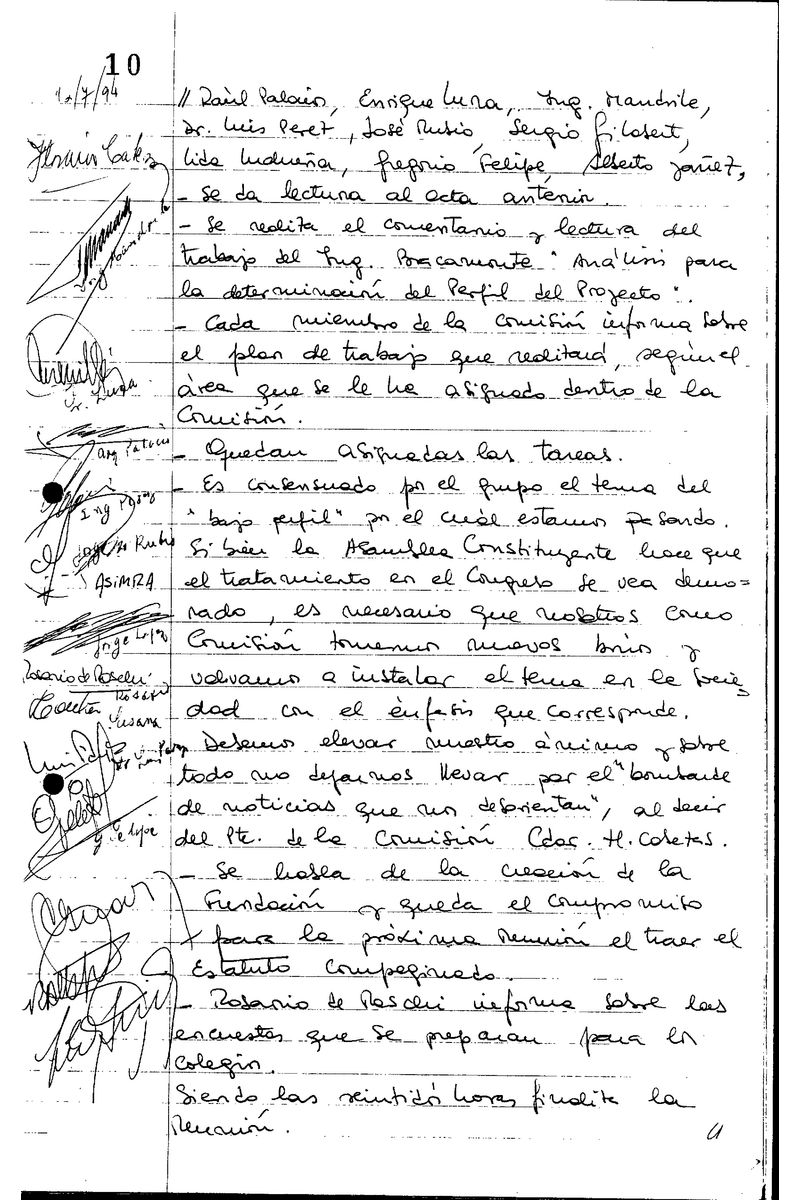 10
12/7/94
// Raúl Palacio, Enrique Luna, Ing. Mandrile,
Dr. Luis Perez, José Rubio, Sergio Gilabert,
Lida Ludueña, Gregorio Felipe, Alberto Yañez,
- Se da lectura al acta anterior.
- Se realiza el comentario y lectura del
trabajo del Ing. Bracamonte "Análisis para
la determinación del Perfil del Proyecto".
- Cada miembro de la Comisión informa sobre
el plan de trabajo que realizará, según el
área que se le ha asignado dentro de la
Comisión.
- Quedan asignadas las tareas.
- Es consensuado por el grupo el tema del
"bajo perfil" por el cuál estamos pasando.
Si bien la Asamblea Constituyente hace que
el tratamiento en el Congreso se vea demo=
rado, es necesario que nosotros como
Comisión tomemos nuevos bríos y
volvamos a instalar el tema en la Socie=
dad con el énfasis que corresponde.
Debemos elevar nuestro ánimo y sobre
todo no dejarnos llevar por el "bombardeo
de noticias que nos desorientan", al decir
del Pte. de la Comisión Cdor. H. Caletas.
- Se habla de la creación de la
Fundación y queda el compromiso
para la próxima reunión el traer el
Estatuto compaginado.
- Rosario de Raschi informa sobre las
encuestas que se preparan para los
colegios.
Siendo las veintidós horas finaliza la
Reunión.
Ing Mandrile
Sr. Luna
Arq Palacio
Ing
Rubio
ASIMRA
Jorge López
Rosario de Raschi
Susana
Dr Luis Perez
G. Felipe